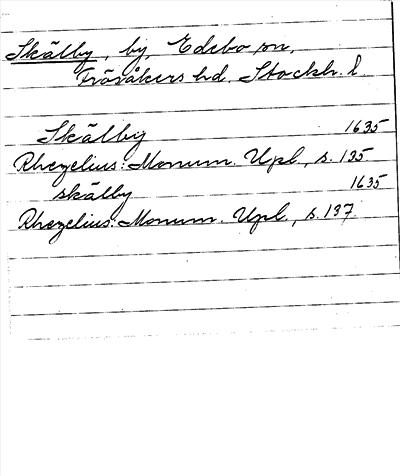 Skälby, by, Edebo sn,
Frösåkers hd. Stockh. l.
Skälby 1635
Rhezelius: Monum. Upl., s. 135
skälby 1635
Rhezelius: Monum. Upl., s. 137